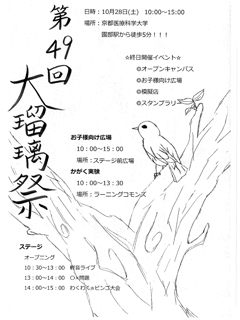 第49回
大瑠璃祭
日時：10月28日(土) 10:00～15:00
場所：京都医療科学大学
園部駅から徒歩5分！！！
☆終日開催イベント☆
◎オープンキャンパス
◎お子様向け広場
◎模擬店
◎スタンプラリー
お子様向け広場
10：00～15：00
場所：ステージ前広場
かがく実験
10：00～13：30
場所：ラーニングコモンズ
ステージ
オープニング
10：30～13：00 軽音ライブ
13：00～14：00
14：00～15：00 わくわくビンゴ大会